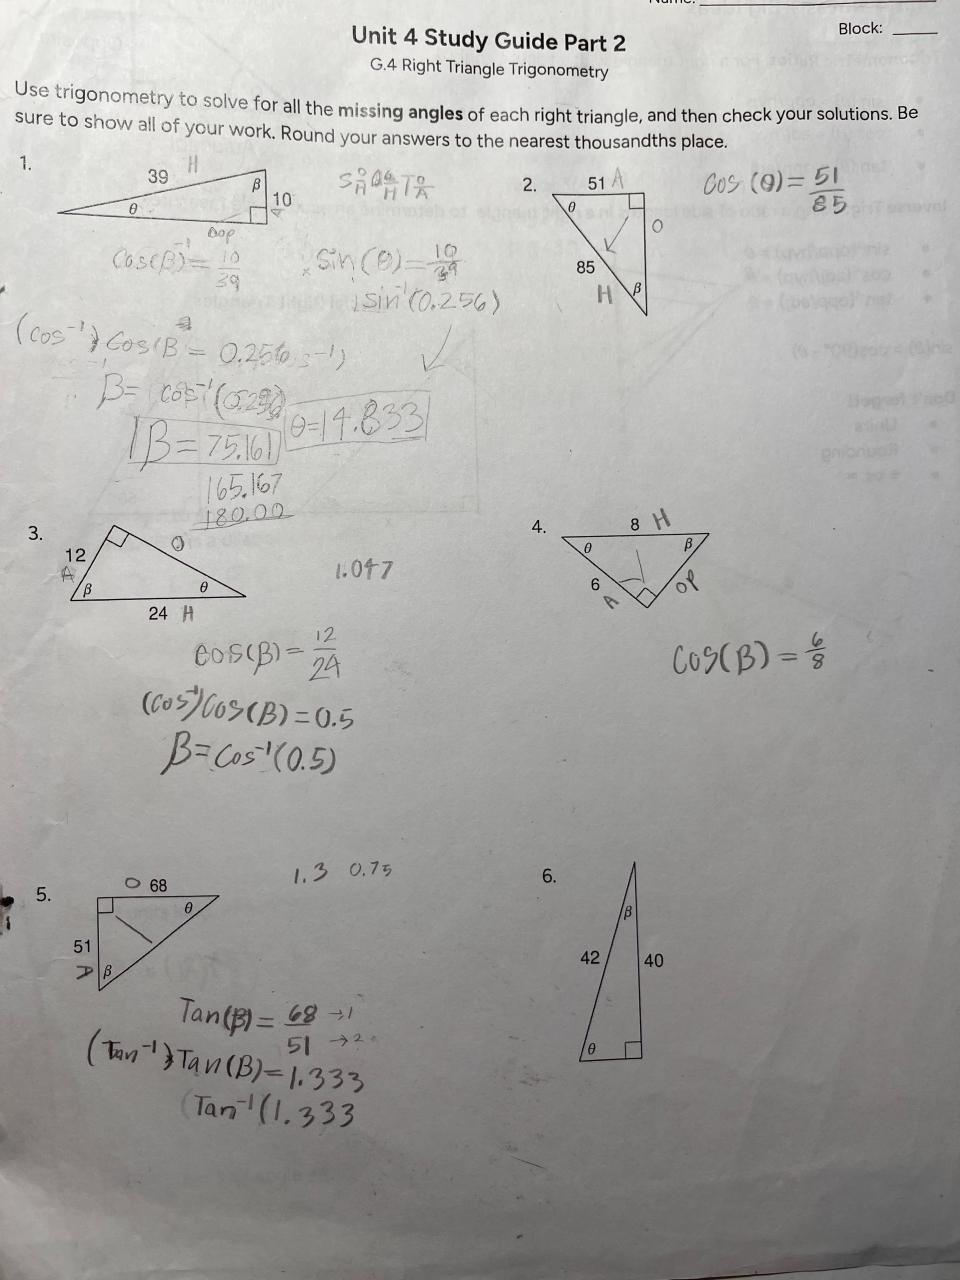 Name:
Block:
Unit 4 Study Guide Part 2
G.4 Right Triangle Trigonometry
Use trigonometry to solve for all the missing angles of each right triangle, and then check your solutions. Be
sure to show all of your work. Round your answers to the nearest thousandths place.
1.
39 H
β
10
θ
Cos(β)⁻¹= 10/39
sin(θ)=10/39
sin⁻¹(0.256)
(cos⁻¹) Cos(β = 0.256
β= cos⁻¹(0.256)
β= 75.161
θ=14.833
165.167
180.00
2.
51 A
θ
O
85
H
β
Cos (θ)= 51/85
3.
12
A
O
β
θ
24 H
1.047
cos(β)= 12/24
(cos⁻¹)Cos(β)=0.5
β=Cos⁻¹(0.5)
4.
8 H
θ
β
6
A
OP
Cos(β)= 6/8
5.
O 68
θ
51
A
β
1.3 0.75
Tan(β)= 68/51 →1 →2
(Tan⁻¹)Tan(β)=1.333
(Tan⁻¹(1.333
6.
β
42
40
θ